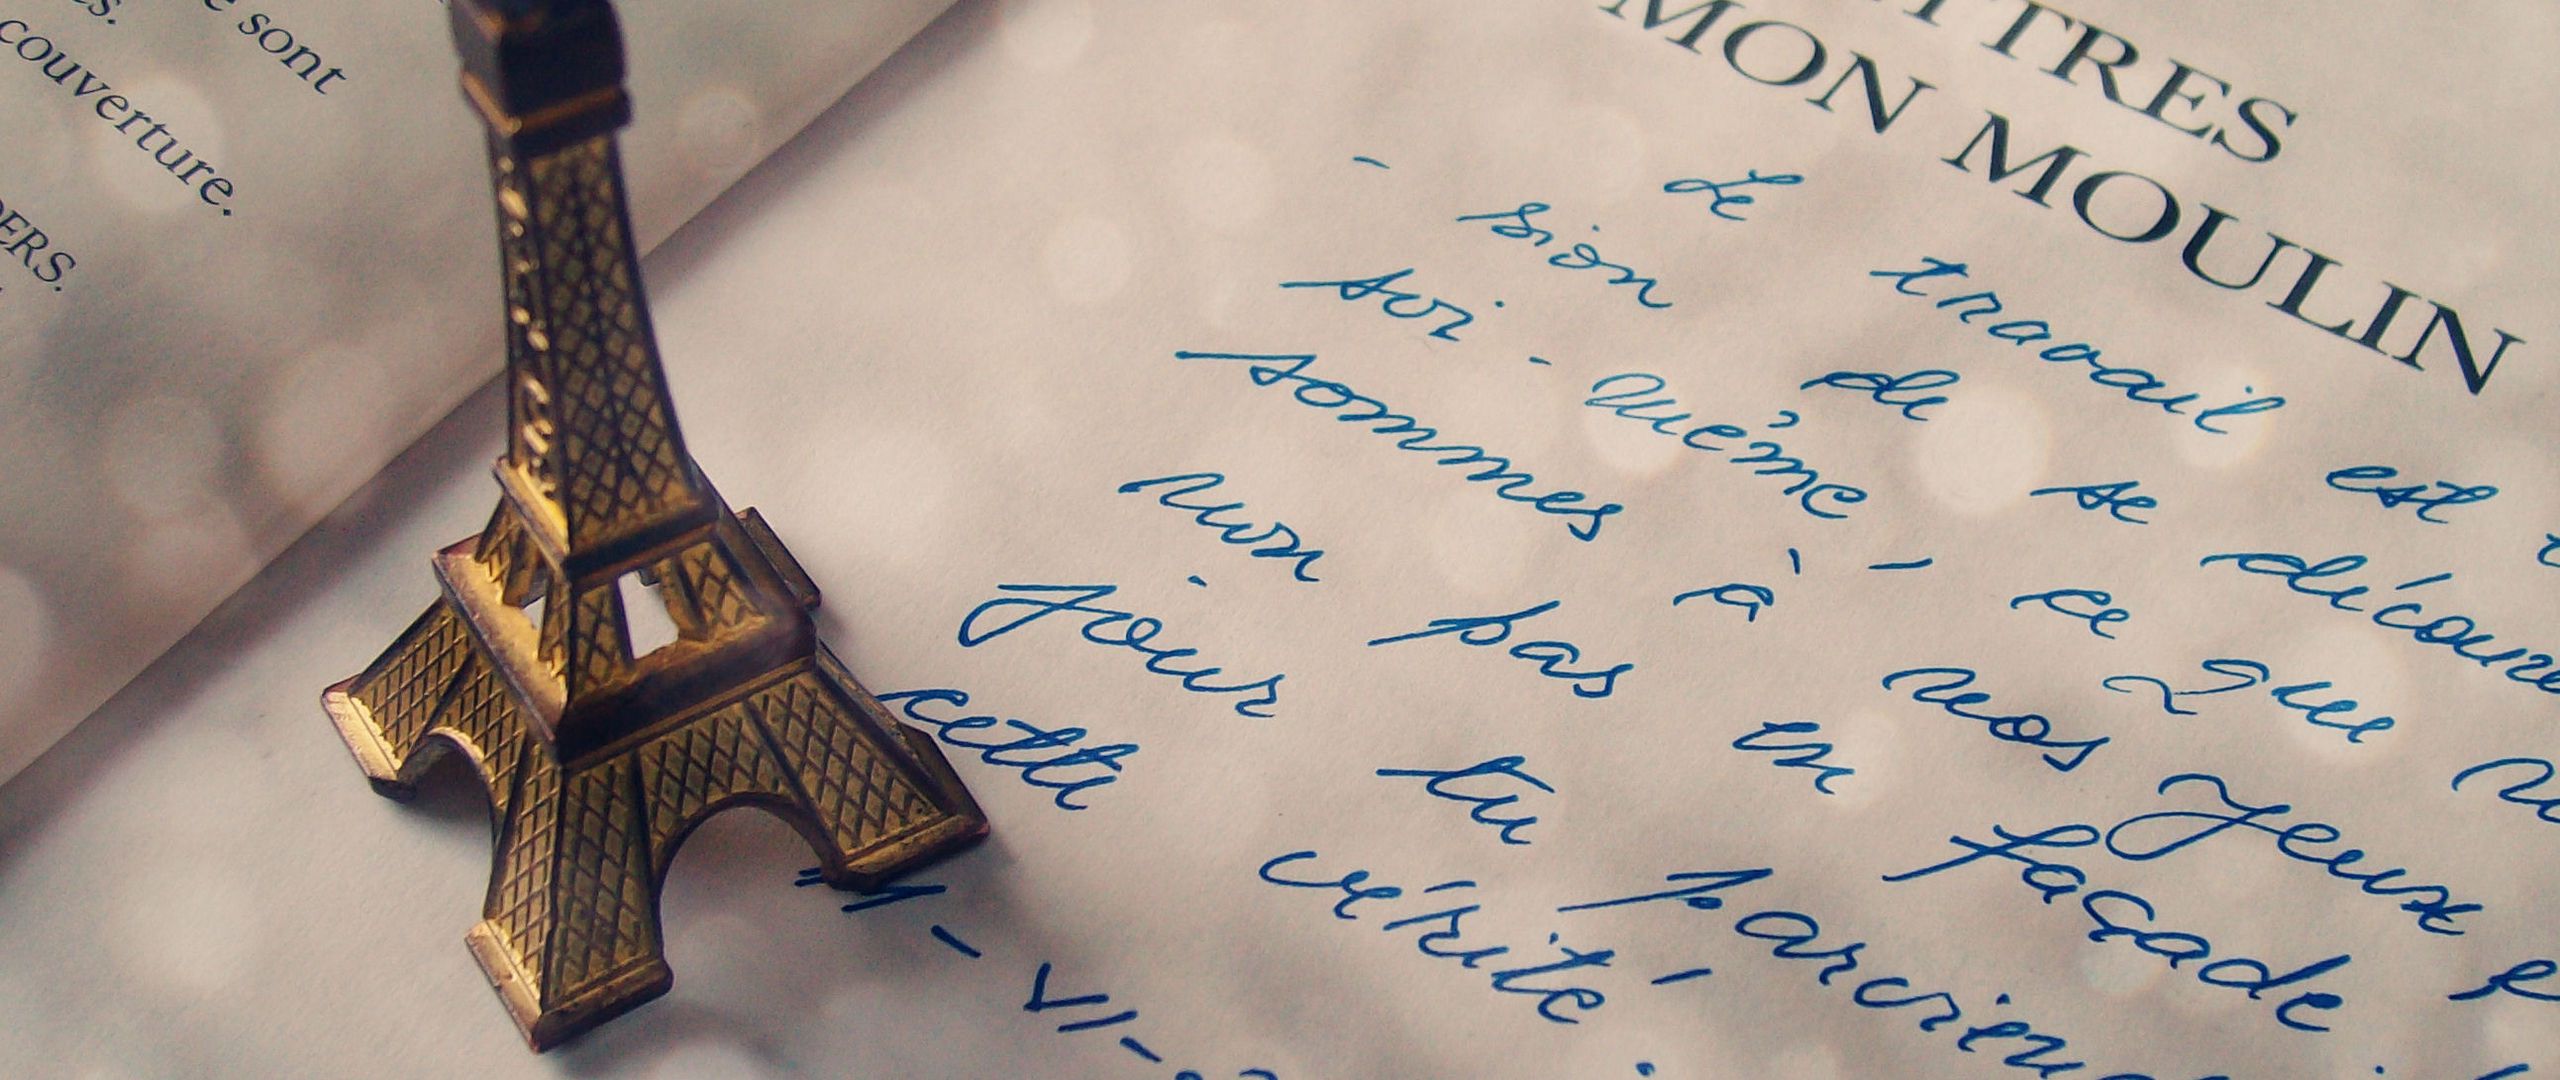 sont
couverture.
TTRES
MON MOULIN
Le travail est
- sion de se découvr
soi-même, ce que
sommes à nos yeux
non pas en façade.
jour tu parvien
cette vérité.
- VI -